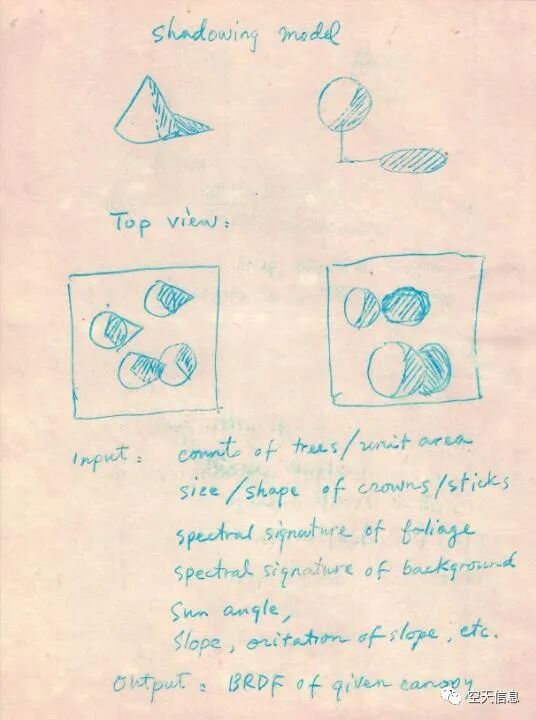 Shadowing model
Top view:
Input: counts of trees/unit area
size/shape of crowns/sticks
spectral signature of foliage
spectral signature of background
Sun angle,
Slope, oritation of slope, etc.
Output: BRDF of given canopy
空天信息